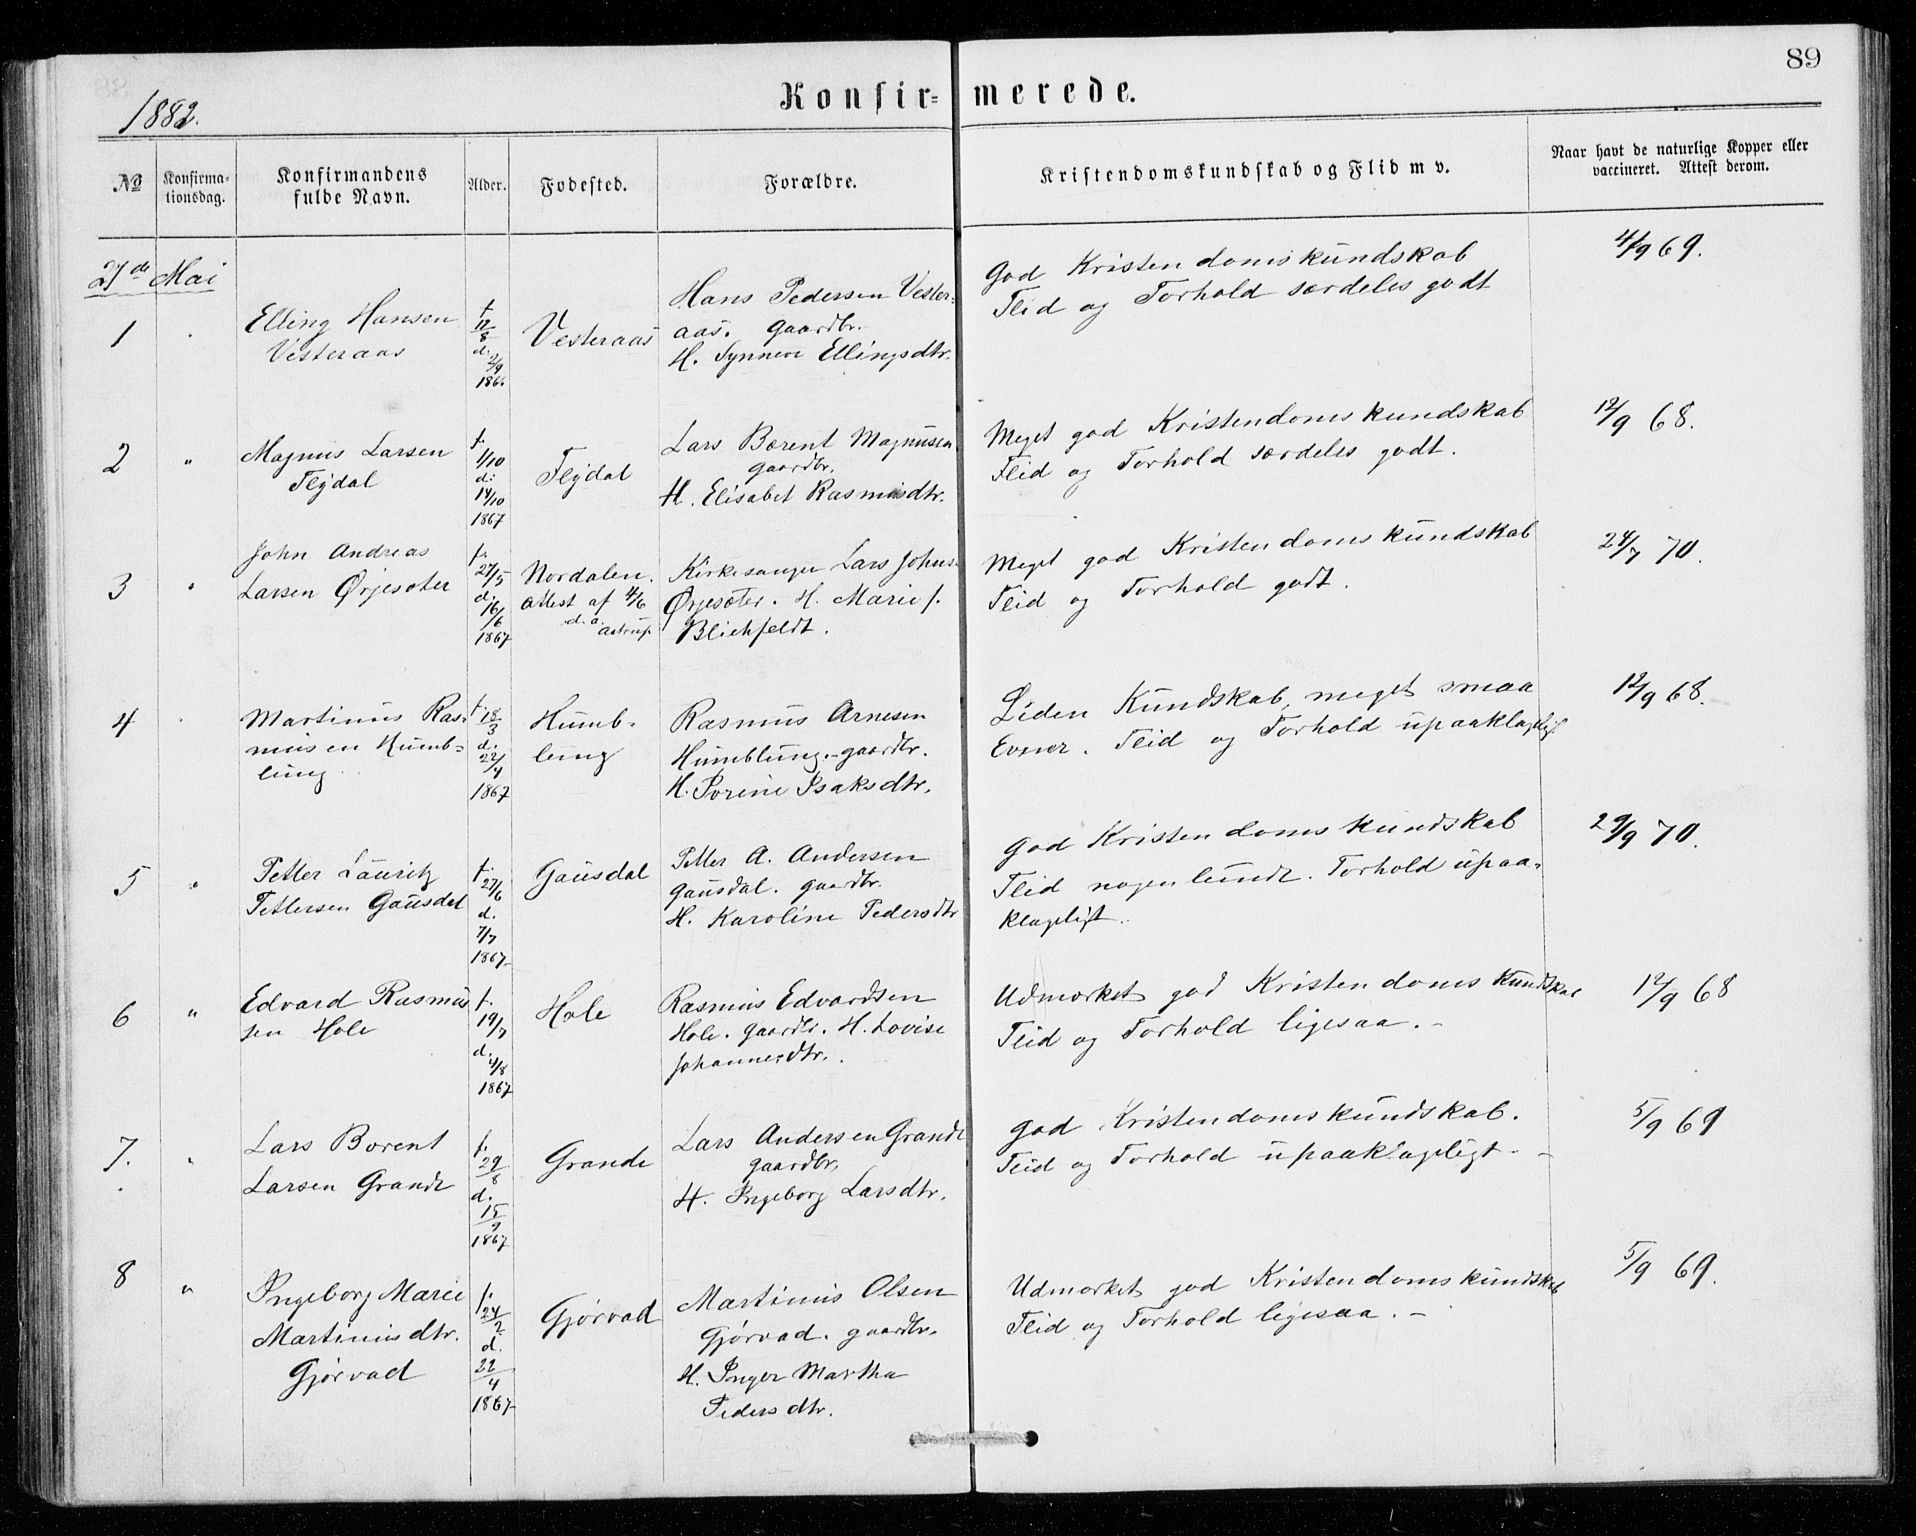 89
Konfir= merede.
1882.
No
Konfirma-
tionsdag.
Konfirmandens
fulde Navn.
Alder.
Fødested.
Forældre.
Kristendomskundskab og Flid m v.
Naar havt de naturlige Kopper eller
vaccineret. Attest derom.
Mai
1
Elling Hansen
Vesteraas
f.
11/8
d.
2/9
Vesteraas
Hans Pedersen Vester-
aas. Gaardbr.
H. Synneve Ellingsdtr.
God Kristendomskundskab
Flid og Forhold særdeles godt
4/9 69.
2 "
Magnus Larsen
Flydal
f.
1/10
d:
14/10
1867
Flydal
Lars Bærent Magnusen
Gaardbr.
H. Elisabet Rasmusdtr.
Meget god Kristendomskundskab
Flid og Forhold særdeles godt.
12/9 68.
3 "
John Andreas
Larsen Ørjesæter
f.
27/5
d.
16/6
1867
Nordalen.
Attest af 4/6
d. a.
Astrup
Kirkesanger Lars Johns.
Ørjesæter. H. Marie f.
Blichfeldt.
Meget god Kristendomskundskab
Flid og Forhold godt.
24/7 70.
4
Martinus Ras-
musen Humb-
lung
f. 18/3
d.
22/4
1867
Humb-
lung
Rasmus Arnesen
Humblung. gaardbr.
H. Sorine Isaksdtr.
Liden Kundskab, meget smaa
Evner. Flid og Forhold upaaklageligt
12/9 68.
5 "
Petter Lauritz
Pettersen Gausdal
f.
27/6
d.
7/7
1867
Gausdal
Petter A. Andersen
Gausdal. gaardbr.
H. Karoline Pedersdtr
God Kristendomskundskab
Flid nogenlunde. Forhold upaa-
klageligt.
29/9 70.
6 "
Edvard Rasmus
sen Hole
f.
19/7
d.
4/8
1867
Hole
Rasmus Edvardsen
Hole. gaardbr. H. Lovise
Johannesdtr.
Udmærket god Kristendomskundskab
Flid og Forhold ligesaa. -
12/9 68
7. "
Lars Bærent
Larsen Grande
f.
29/8
d.
15/9
1867
Grande
Lars Andersen Grande
gaardbr.
H. Ingeborg Larsdtr.
God Kristendomskundskab.
Flid og Forhold upaaklageligt - -
5/9 69
8 "
Ingeborg Marie
Martinusdtr.
Gjørvad
f.
24/2
d.
22/4
1867
Gjørvad
Martinus Olsen
Gjørvad. gaardbr.
H. Inger Martha
Pedersdtr.
Udmærket god Kristendomskundskab
Flid og Forhold ligesaa. -
5/9 69.